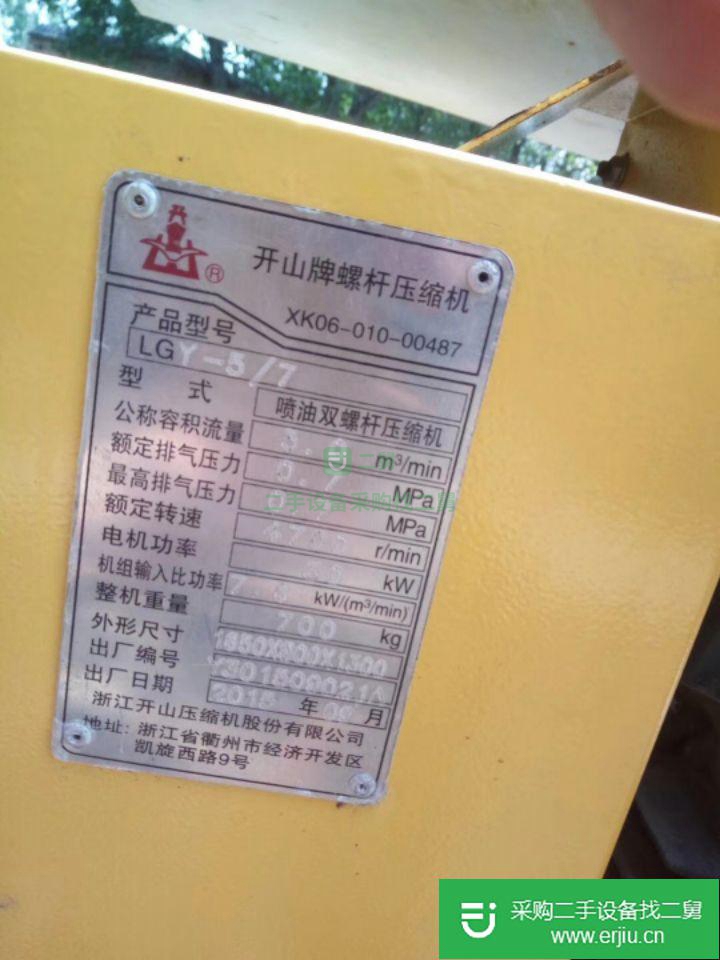 开山牌螺杆压缩机
XK06-010-00487
产品型号
LGY-5/7
型 式 喷油双螺杆压缩机
公称容积流量 m³/min
额定排气压力 0.7 MPa
最高排气压力 MPa
额定转速 r/min
电机功率 kW
机组输入比功率 kW/(m³/min)
整机重量 700 kg
外形尺寸
出厂编号
出厂日期 2015 年 09 月
浙江开山压缩机股份有限公司
地址: 浙江省衢州市经济开发区
凯旋西路9号
二手设备采购找二舅
采购二手设备找二舅
www.erjiu.cn